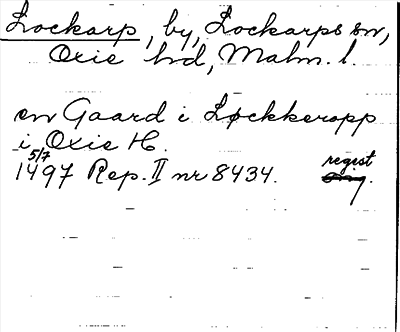 Lockarp, by, Lockarps sn,
Oxie hd, Malm. l.
en Gaard i Løckkeropp
i Oxie H.
5/7
1497 Rep. II nr 8434. regest